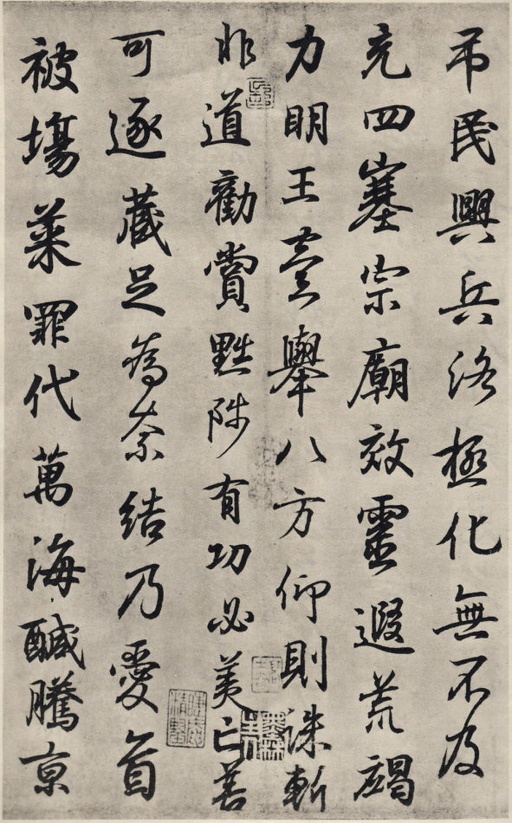 弔民興兵洛極化無不及
充四塞宗廟效靈遐荒竭
力明王臺舉八方仰則誅斬
非道勸賞黜陟有功必美亡善
可逐藏足為奈結乃愛首
被場菜罪代萬海鹹騰京